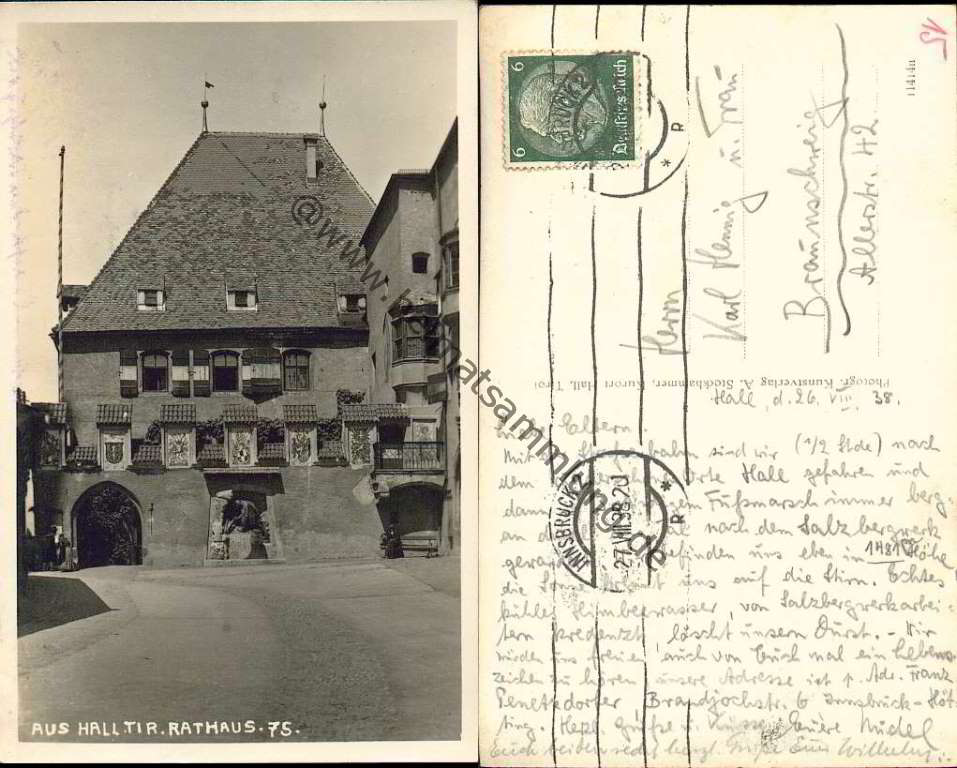 AUS HALL.TIR.RATHAUS.75.
@www.heimatsammlung.de
15
11414a
6 6
Deutsches Reich
INNSBRUCK 2
27.VIII.38.20
R
R
Herrn
Karl Hennig u. Frau
Braunschweig
Allerstr. 42
Photogr. Kunstverlag A. Stockhammer, Kurort Hall, Tirol
Hall d. 26. VIII 38.
Eltern.
Mit bahn sind wir (1/2 Stde) nach
dem Orte Hall gefahren und
dann Fußmarsch immer berg-
an nach dem Salzbergwerk
befinden uns eben in 1481 Höhe
die Sonne uns auf die Stirn. Echtes
kühles Himbeerwasser, von Salzbergwerkarbei-
tern kredenzt, löscht unsern Durst. - Wir
würden uns freuen auch von Euch mal ein Lebens-
zeichen zu hören, unsere Adresse ist p. Adr. Franz
Brandjochstr. 6 Innsbruck-Höt-
ting. Herzl. Grüße u. Küsse Eure
herzl. Grüße Euer Wilhelm